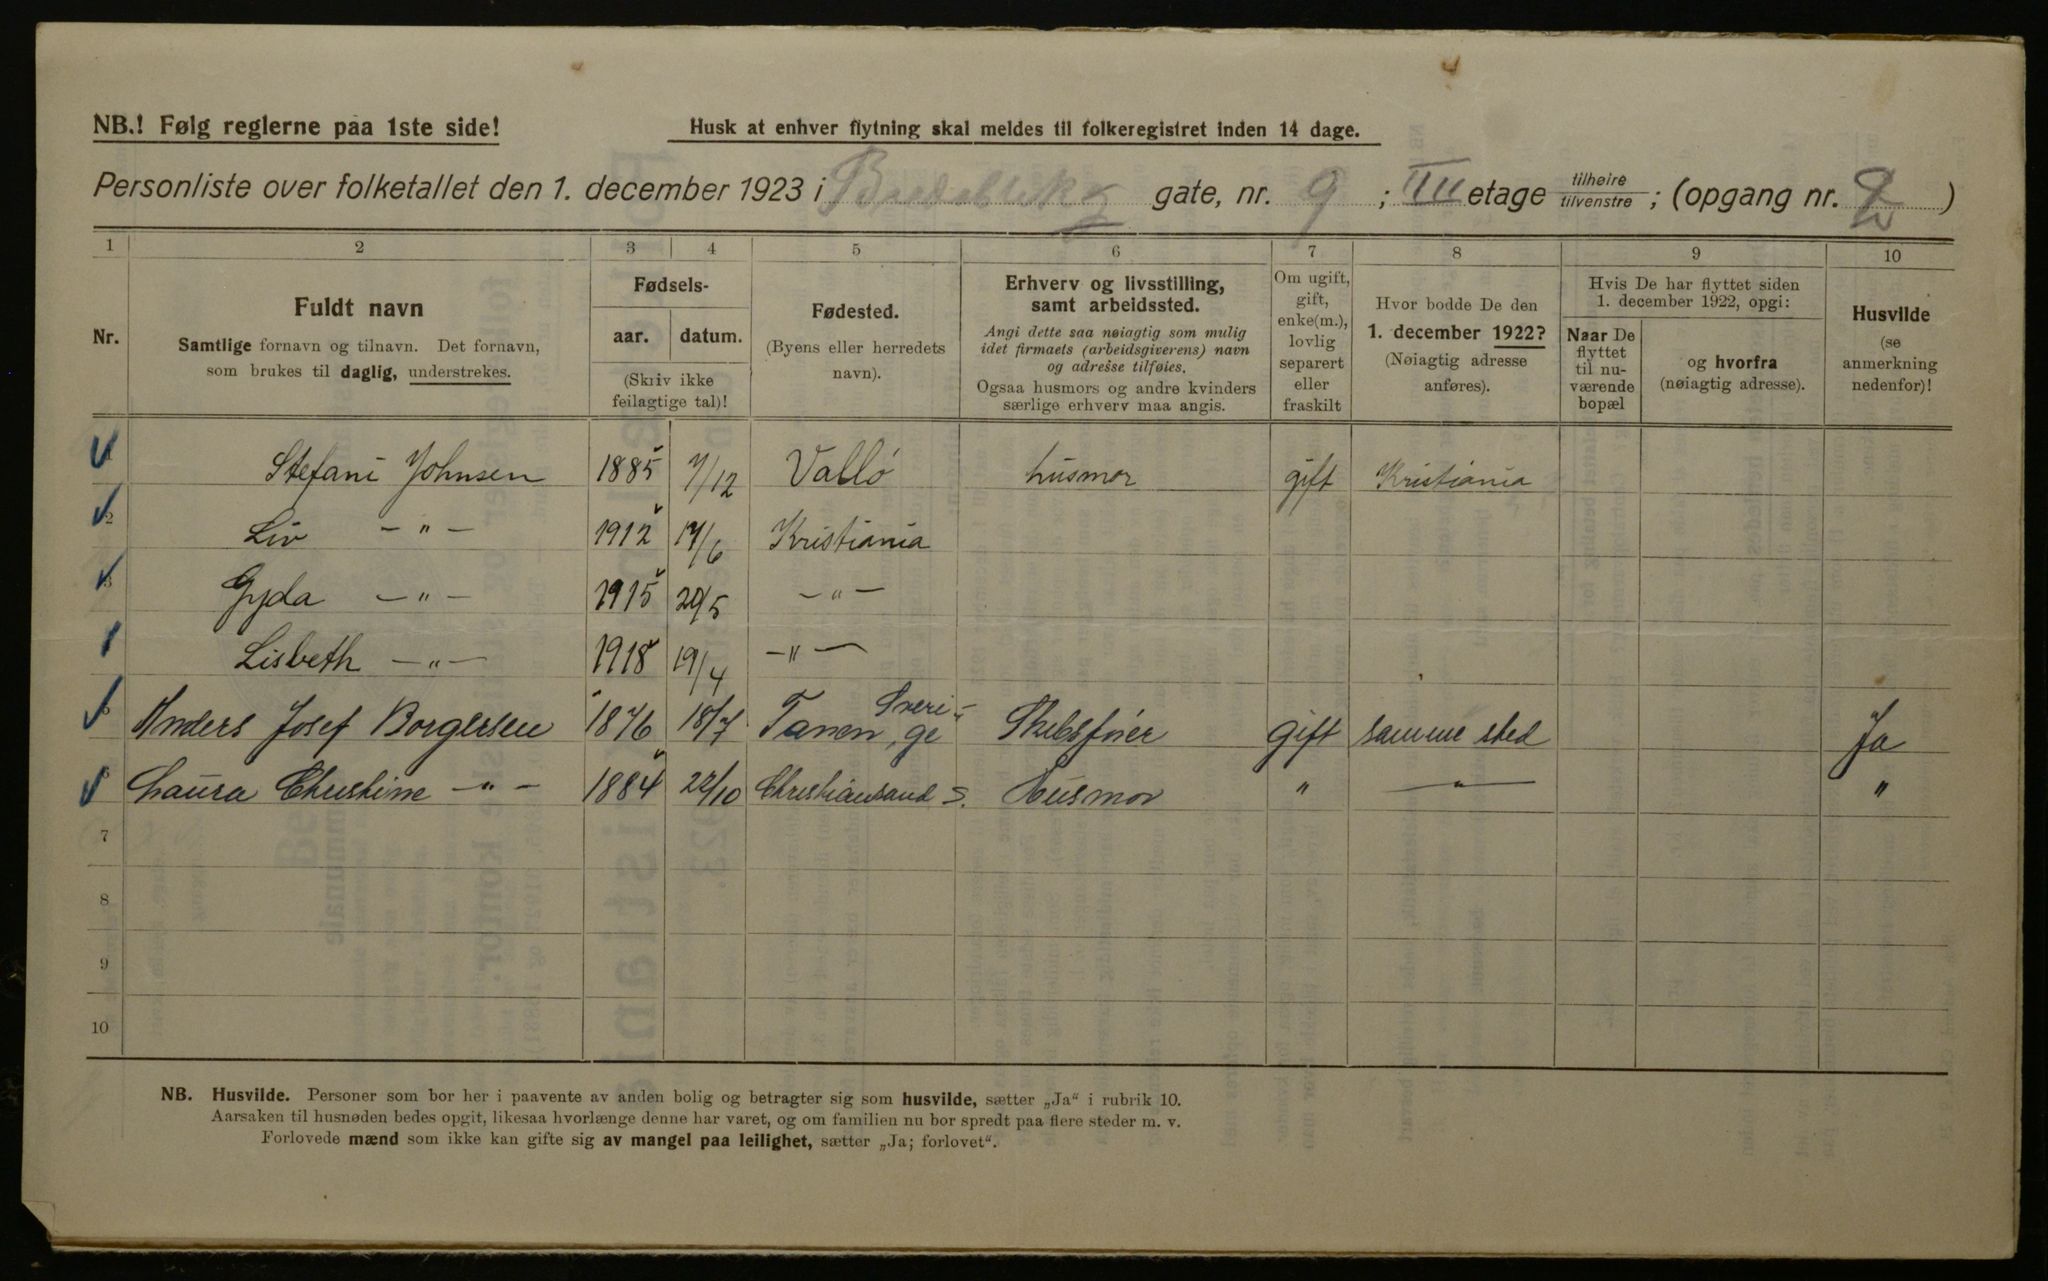 NB.! Følg reglerne paa 1ste side!
Husk at enhver flytning skal meldes til folkeregistret inden 14 dage.
Personliste over folketallet den 1. december 1923 i gate, nr. 9 ; III etage tilhøire tilvenstre ; (opgang nr. 2 )
1 2 3 4 5 6 7 8 9 10
Nr.
Fuldt navn
Samtlige fornavn og tilnavn. Det fornavn,
som brukes til daglig, understrekes.
Fødsels-
aar. datum.
(Skriv ikke
feilagtige tal)!
Fødested.
(Byens eller herredets
navn).
Erhverv og livsstilling,
samt arbeidssted.
Angi dette saa nøiagtig som mulig
idet firmaets (arbeidsgiverens) navn
og adresse tilføies.
Ogsaa husmors og andre kvinders
særlige erhverv maa angis.
Om ugift,
gift,
enke(m.),
lovlig
separert
eller
fraskilt
Hvor bodde De den
1. december 1922?
(Nøiagtig adresse
anføres).
Hvis De har flyttet siden
1. december 1922, opgi:
Naar De
flyttet
til nu-
værende
bopæl
og hvorfra
(nøiagtig adresse).
Husvilde
(se
anmerkning
nedenfor)!
1 Stefani Johnsen 1885 7/12 Valló husmor gift Kristiania
2 Liv — " — 1912 17/6 Kristiania
3 Gyda — " — 1915 20/5 — " —
Lisbeth — " — 1918 19/4 — " —
5 Anders Josef Borgersen 1876 18/7 Tanen, Sveri-ge Skibsfører gift samme sted Ja
6 Laura Christine — " — 1884 22/10 Christiansand S. Husmor " — " — "
7
8
9
10
NB. Husvilde. Personer som bor her i paavente av anden bolig og betragter sig som husvilde, sætter „Ja“ i rubrik 10.
Aarsaken til husnøden bedes opgit, likesaa hvorlænge denne har varet, og om familien nu bor spredt paa flere steder m. v.
Forlovede mænd som ikke kan gifte sig av mangel paa leilighet, sætter „Ja; forlovet“.